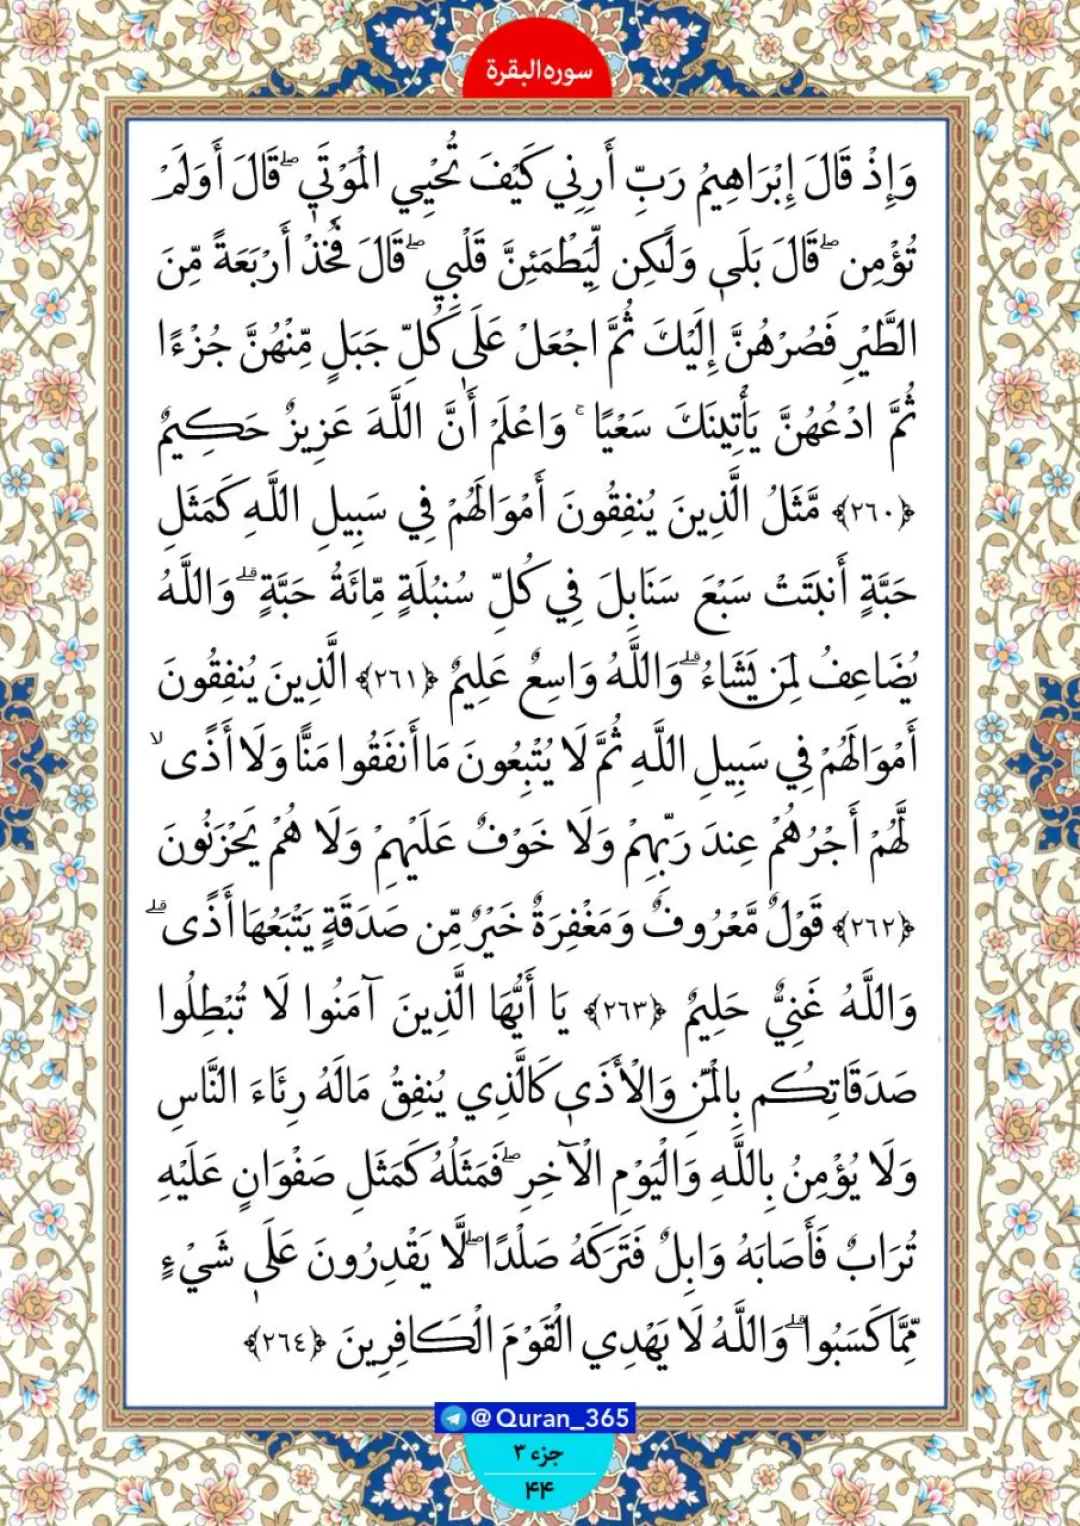 سوره البقرة
وَإِذْ قَالَ إِبْرَاهِيمُ رَبِّ أَرِنِي كَيْفَ تُحْيِي الْمَوْتَىٰ ۖ قَالَ أَوَلَمْ
تُؤْمِن ۖ قَالَ بَلَىٰ وَلَٰكِن لِّيَطْمَئِنَّ قَلْبِي ۖ قَالَ فَخُذْ أَرْبَعَةً مِّنَ
الطَّيْرِ فَصُرْهُنَّ إِلَيْكَ ثُمَّ اجْعَلْ عَلَىٰ كُلِّ جَبَلٍ مِّنْهُنَّ جُزْءًا
ثُمَّ ادْعُهُنَّ يَأْتِينَكَ سَعْيًا ۚ وَاعْلَمْ أَنَّ اللَّهَ عَزِيزٌ حَكِيمٌ
﴿٢٦٠﴾ مَّثَلُ الَّذِينَ يُنفِقُونَ أَمْوَالَهُمْ فِي سَبِيلِ اللَّهِ كَمَثَلِ
حَبَّةٍ أَنبَتَتْ سَبْعَ سَنَابِلَ فِي كُلِّ سُنبُلَةٍ مِّائَةُ حَبَّةٍ ۗ وَاللَّهُ
يُضَاعِفُ لِمَن يَشَاءُ ۗ وَاللَّهُ وَاسِعٌ عَلِيمٌ ﴿٢٦١﴾ الَّذِينَ يُنفِقُونَ
أَمْوَالَهُمْ فِي سَبِيلِ اللَّهِ ثُمَّ لَا يُتْبِعُونَ مَا أَنفَقُوا مَنًّا وَلَا أَذًى ۙ
لَّهُمْ أَجْرُهُمْ عِندَ رَبِّهِمْ وَلَا خَوْفٌ عَلَيْهِمْ وَلَا هُمْ يَحْزَنُونَ
﴿٢٦٢﴾ قَوْلٌ مَّعْرُوفٌ وَمَغْفِرَةٌ خَيْرٌ مِّن صَدَقَةٍ يَتْبَعُهَا أَذًى ۗ
وَاللَّهُ غَنِيٌّ حَلِيمٌ ﴿٢٦٣﴾ يَا أَيُّهَا الَّذِينَ آمَنُوا لَا تُبْطِلُوا
صَدَقَاتِكُم بِالْمَنِّ وَالْأَذَىٰ كَالَّذِي يُنفِقُ مَالَهُ رِئَاءَ النَّاسِ
وَلَا يُؤْمِنُ بِاللَّهِ وَالْيَوْمِ الْآخِرِ ۖ فَمَثَلُهُ كَمَثَلِ صَفْوَانٍ عَلَيْهِ
تُرَابٌ فَأَصَابَهُ وَابِلٌ فَتَرَكَهُ صَلْدًا ۖ لَّا يَقْدِرُونَ عَلَىٰ شَيْءٍ
مِّمَّا كَسَبُوا ۗ وَاللَّهُ لَا يَهْدِي الْقَوْمَ الْكَافِرِينَ ﴿٢٦٤﴾
@Quran_365
جزء ۳
۴۴